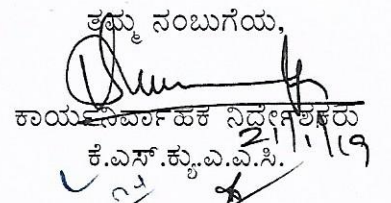 ತಮ್ಮ ನಂಬುಗೆಯ,
ಕಾರ್ಯನಿರ್ವಾಹಕ ನಿರ್ದೇಶಕರು
21/1/19
ಕೆ.ಎಸ್.ಕ್ಯು.ಎ.ಎ.ಸಿ.